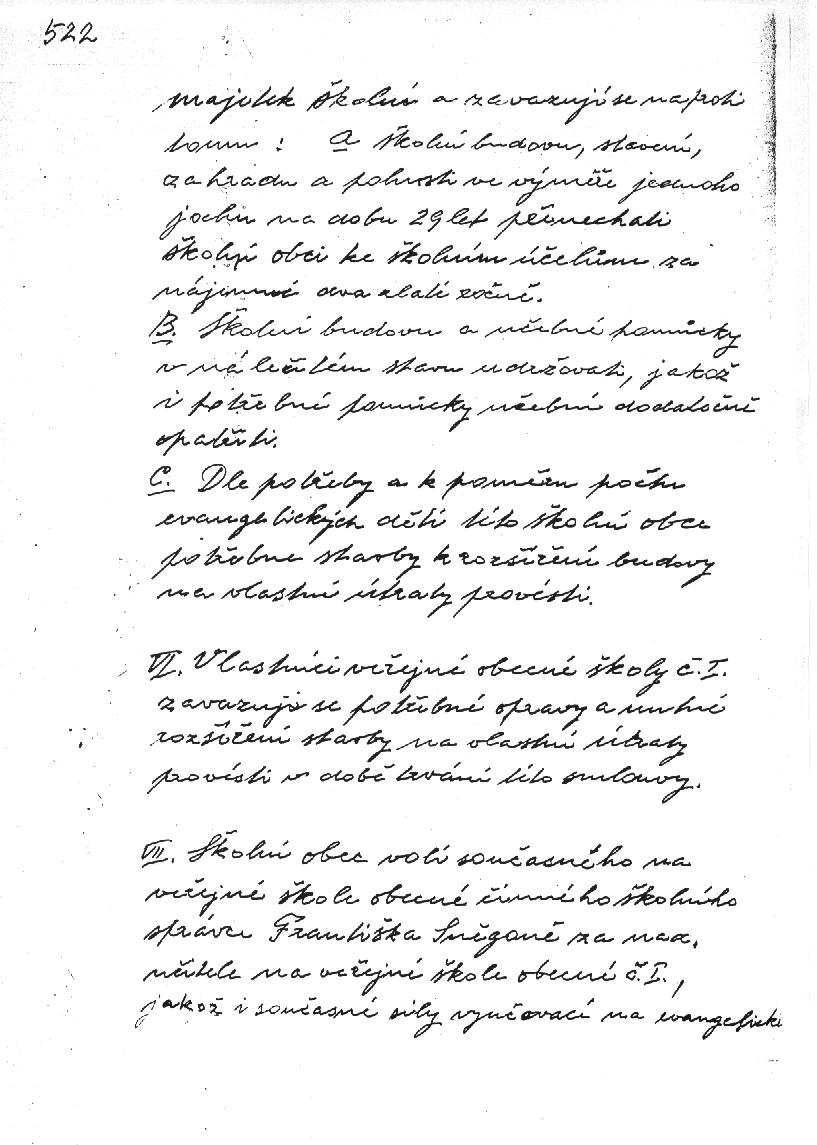 522
majetek školní a zavazují se naproti
tomu: A školní budovu, stavení,
zahradu a polnosti ve výměře jednoho
jochu na dobu 29 let přenechati
školní obci ke školním účelům za
nájemné dva zlaté ročně.
B. Školní budovu a učebné pomůcky
v náležitém stavu udržovati, jakož
i potřebné pomůcky učebné dodatečně
opatřiti.
C. Dle potřeby a k poměru počtu
evangelických dětí této školní obce
potřebne stavby k rozšíření budovy
na vlastní útraty provésti.
VI. Vlastníci veřejné obecné školy č. I.
zavazují se potřebné opravy a nutné
rozšíření stavby na vlastní útraty
provésti v době trvání této smlouvy.
VII. Školní obec volí současného na
veřejné škole obecné činného školního
správce Františka Sněgoně za nad.
učitele na veřejné škole obecné č. I.,
jakož i současné síly vyučovací na evangelické